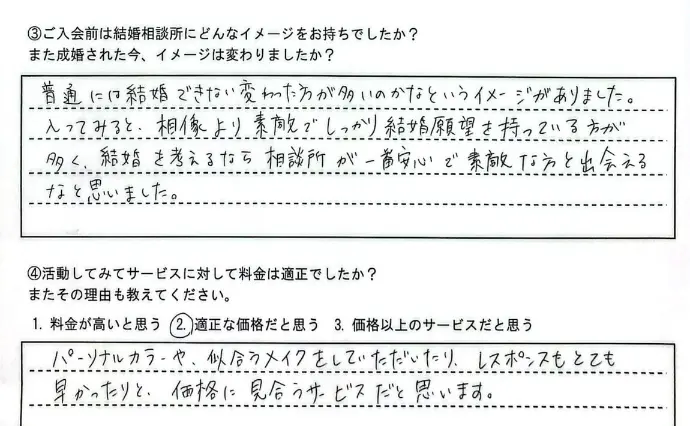 ③ご入会前は結婚相談所にどんなイメージをお持ちでしたか？
また成婚された今、イメージは変わりましたか？
普通には結婚できない変わった方が多いのかなというイメージがありました。
入ってみると、相像より素敵でしっかり結婚願望を持っている方が
多く、結婚を考えるなら相談所が一番安心で素敵な方と出会える
なと思いました。
④活動してみてサービスに対して料金は適正でしたか？
またその理由も教えてください。
1. 料金が高いと思う 2. 適正な価格だと思う 3. 価格以上のサービスだと思う
パーソナルカラーや、似合うメイクをしていただいたり、レスポンスもとても
早かったりと、価格に見合うサービスだと思います。